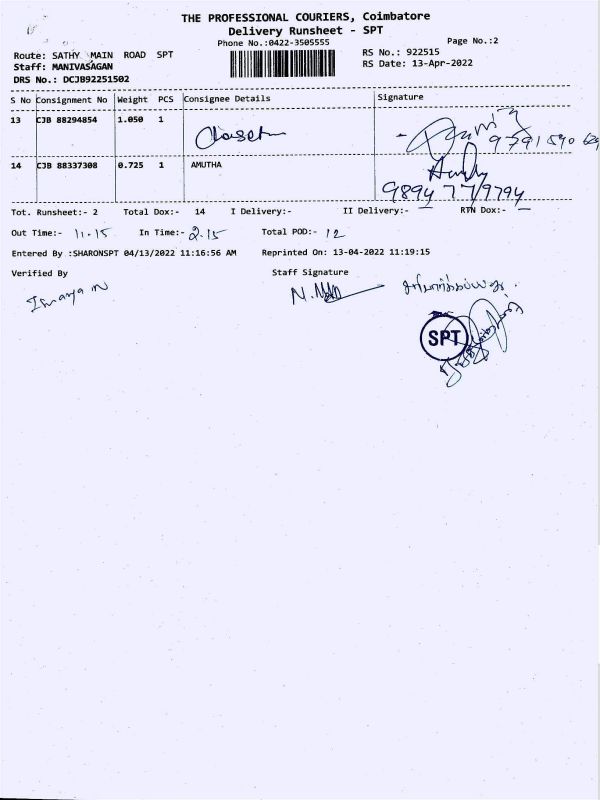 THE PROFESSIONAL COURIERS, Coimbatore
Delivery Runsheet - SPT
Phone No.:0422-3505555
Page No.:2
Route: SATHY MAIN ROAD SPT
RS No.: 922515
Staff: MANIVASAGAN
RS Date: 13-Apr-2022
DRS No.: DCJB92251502
S No Consignment No Weight PCS Consignee Details Signature
13 CJB 88294854 1.050 1
14 CJB 88337308 0.725 1 AMUTHA
Tot. Runsheet:- 2 Total Dox:- 14 I Delivery:- II Delivery:- RTN Dox:-
Out Time:- 11.15 In Time:- 2.15 Total POD:- 12
Entered By :SHARONSPT 04/13/2022 11:16:56 AM Reprinted On: 13-04-2022 11:19:15
Verified By Staff Signature
SPT